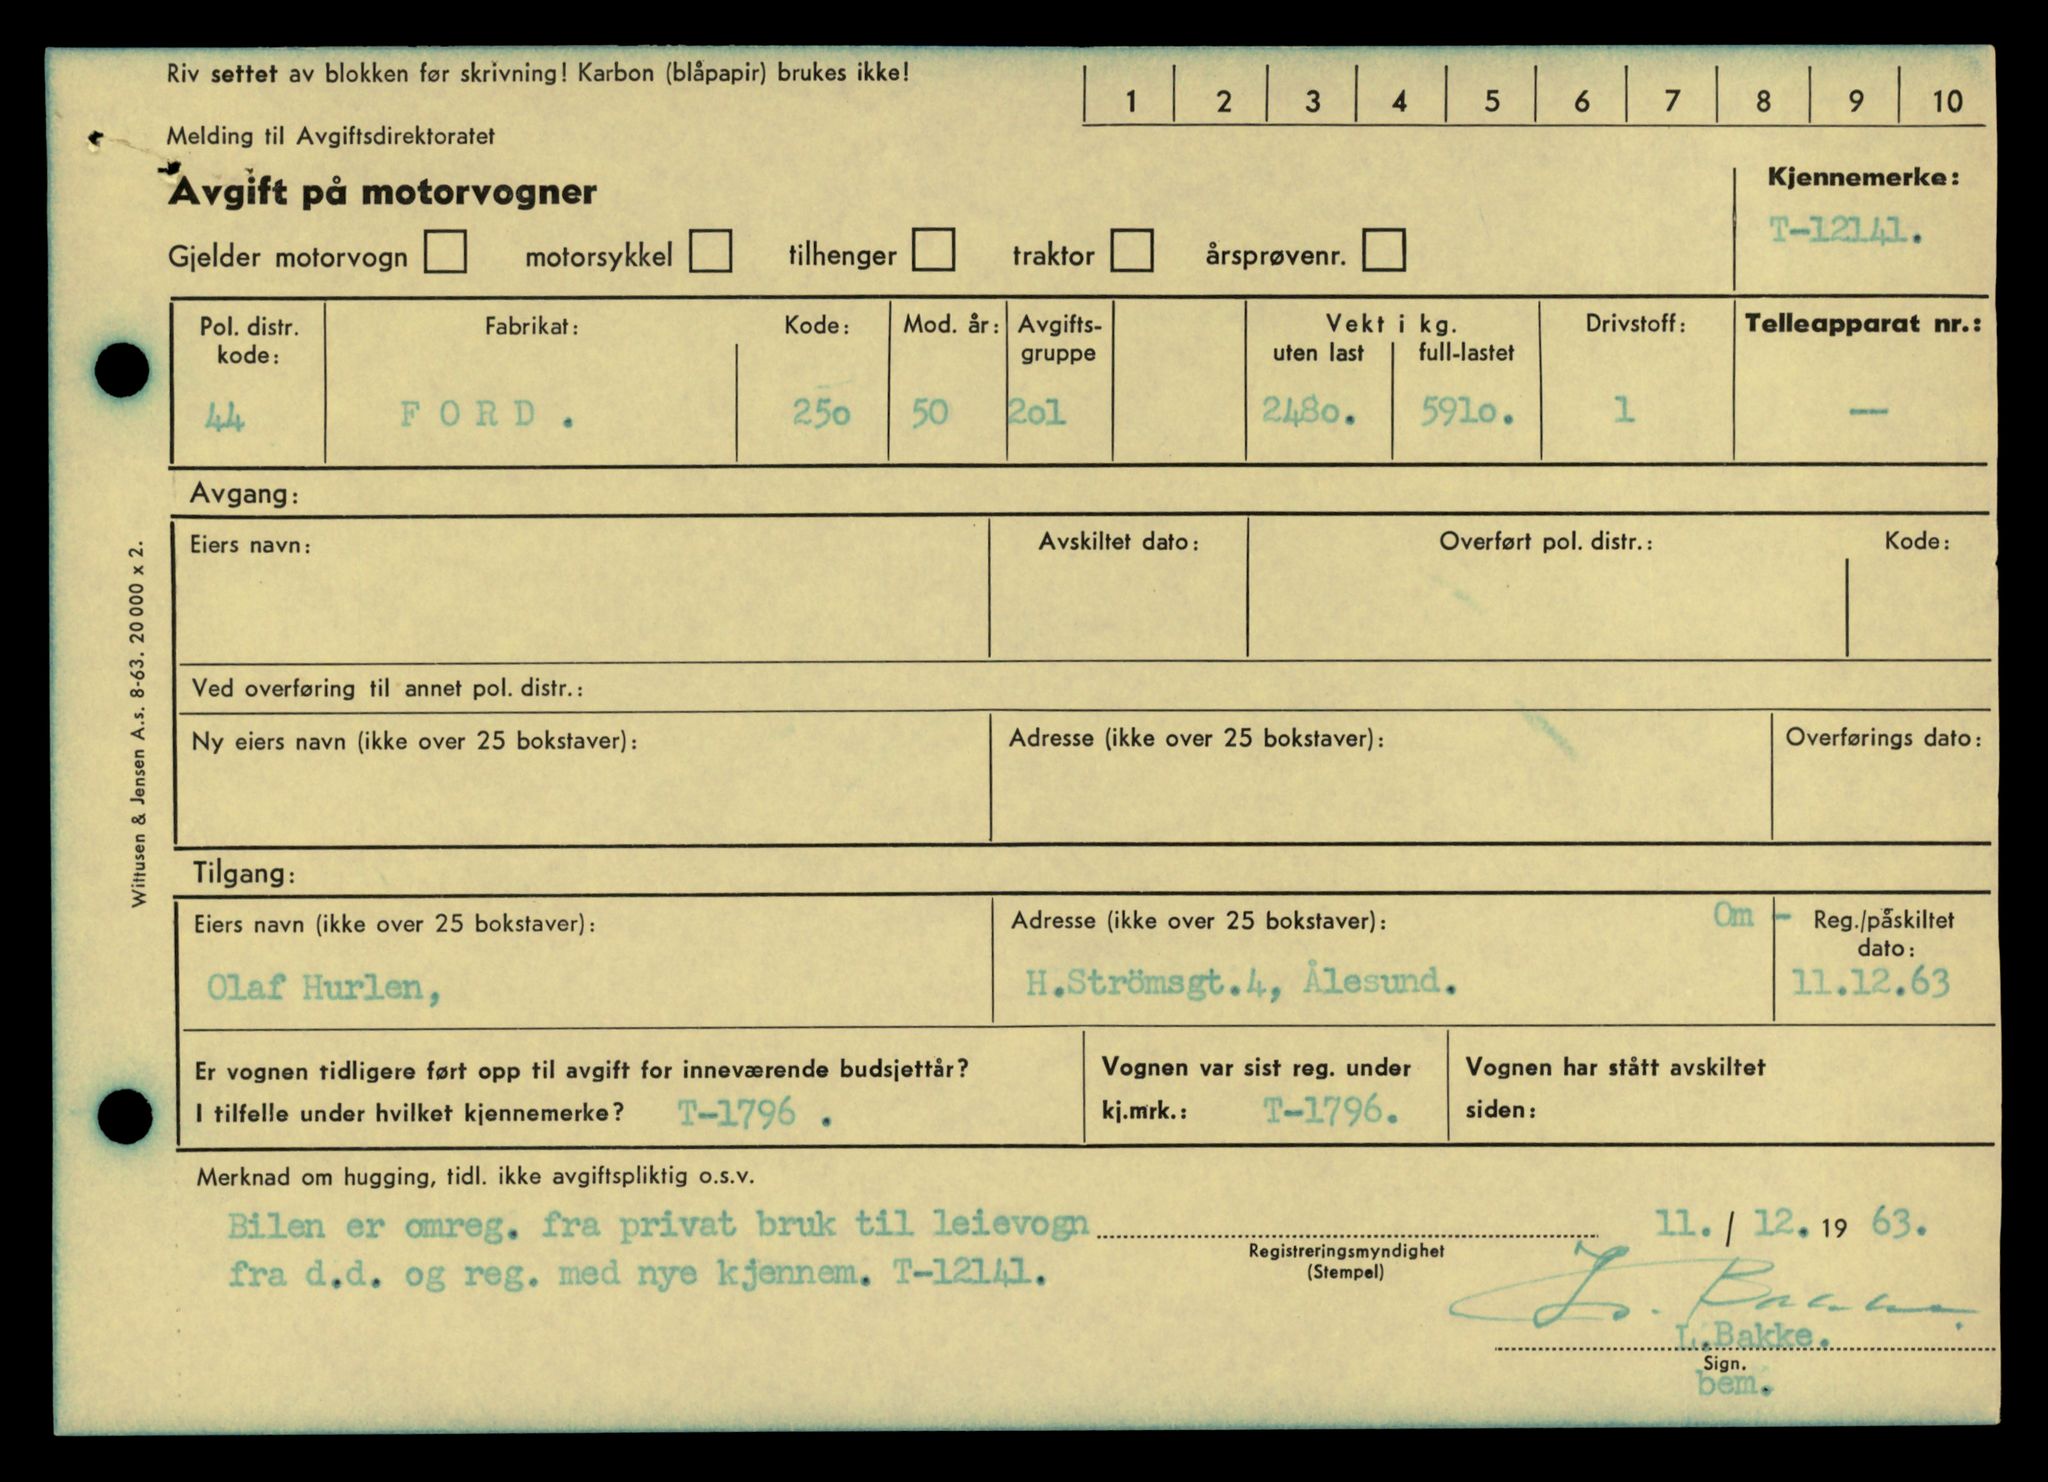 Riv settet av blokken før skrivning! Karbon (blåpapir) brukes ikke!
1 2 3 4 5 6 7 8 9 10
Melding til Avgiftsdirektoratet
Avgift på motorvogner
Kjennemerke:
T-12141.
Gjelder motorvogn motorsykkel tilhenger traktor årsprøvenr.
Pol. distr. kode:
Fabrikat:
Kode:
Mod. år:
Avgifts-
gruppe
Vekt i kg.
uten last
full-lastet
Drivstoff:
Telleapparat nr.:
44 FORD. 250 50 2o1 248o. 591o. 1 —
Avgang:
Eiers navn:
Avskiltet dato:
Overført pol. distr.:
Kode:
Ved overføring til annet pol. distr.:
Ny eiers navn (ikke over 25 bokstaver):
Adresse (ikke over 25 bokstaver):
Overførings dato:
Tilgang:
Eiers navn (ikke over 25 bokstaver):
Olaf Hurlen,
Adresse (ikke over 25 bokstaver):
H.Strömsgt.4, Ålesund.
Om - Reg./påskiltet
dato:
11.12.63
Er vognen tidligere ført opp til avgift for inneværende budsjettår?
I tilfelle under hvilket kjennemerke? T-1796 .
Vognen var sist reg. under
kj.mrk.: T-1796.
Vognen har stått avskiltet
siden:
Merknad om hugging, tidl. ikke avgiftspliktig o.s.v.
Bilen er omreg. fra privat bruk til leievogn
fra d.d. og reg. med nye kjennem. T-12141.
Registreringsmyndighet
(Stempel)
11. / 12. 19 63.
L. Bakke.
L.Bakke.
Sign.
bem.
Wittusen & Jensen A.s. 8-63. 20 000 x 2.